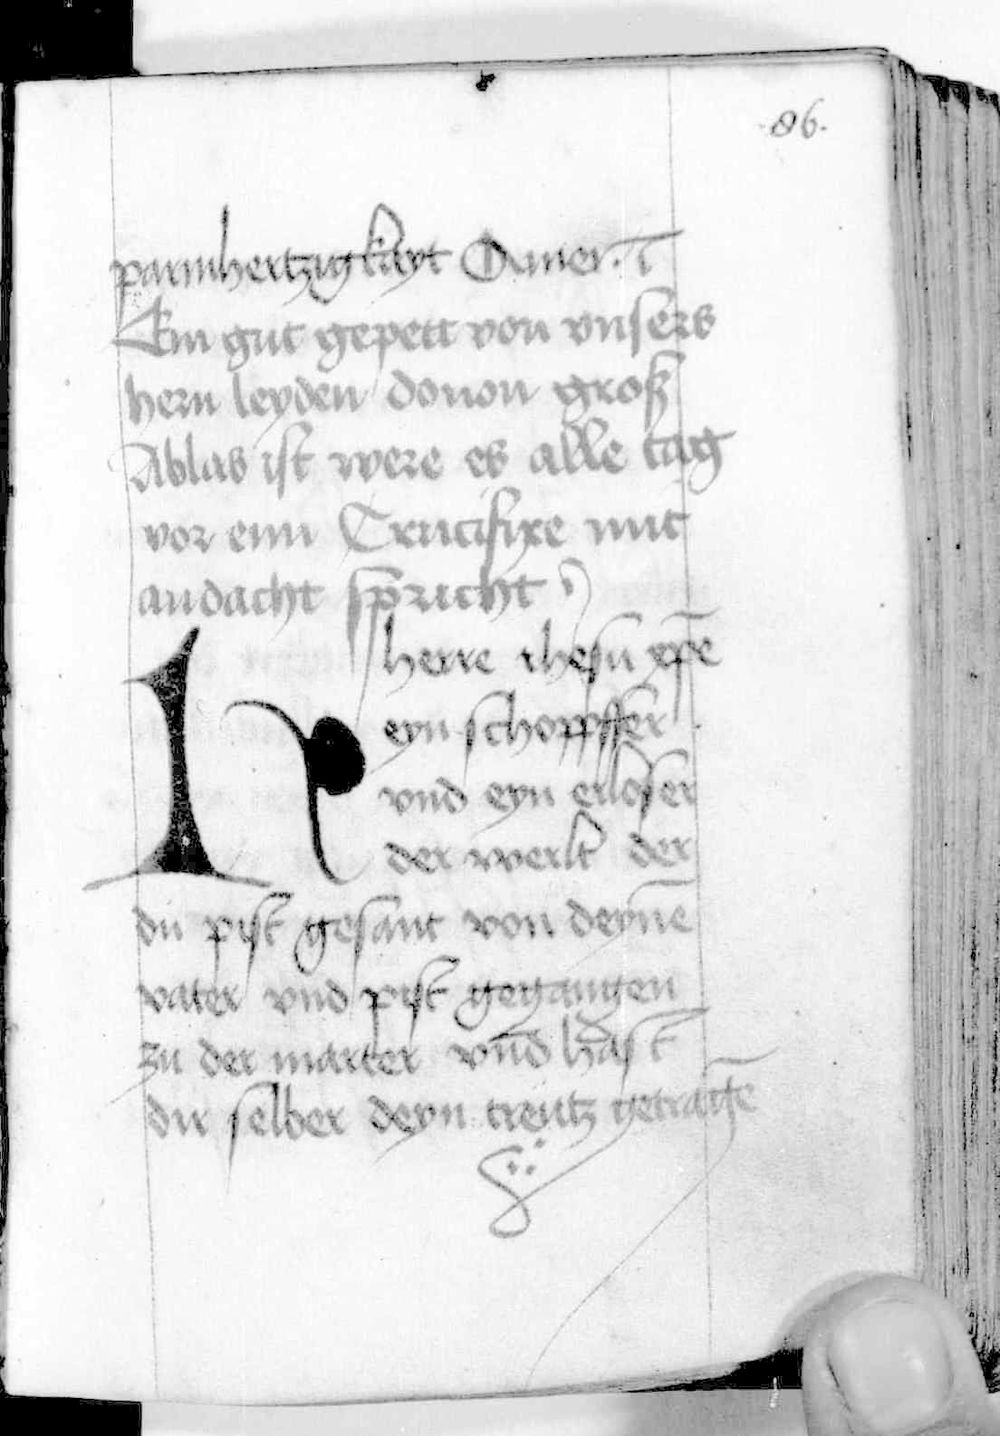 86.
parmhertzigkayt Amen.
Ein gut gepett von vnsers
hern leyden douon groß
Ablas ist were es alle tag
vor eim Crucifixe mit
andacht spricht
herre ihesu xp̄e
eyn schopffer
vnd eyn erloser
der werlt der
du pist gesant von deyne̅
vater vnd pist gegangen
zu der marter vnd hast
dir selber deyn creutz getrage̅